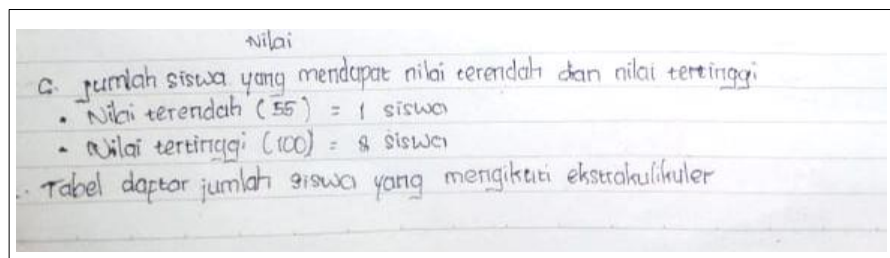 Nilai
C. Jumlah siswa yang mendapat nilai terendah dan nilai tertinggi
• Nilai terendah (55) = 1 siswa
• Nilai tertinggi (100) = 8 siswa
Tabel daptar jumlah siswa yang mengikuti ekstrakulikuler